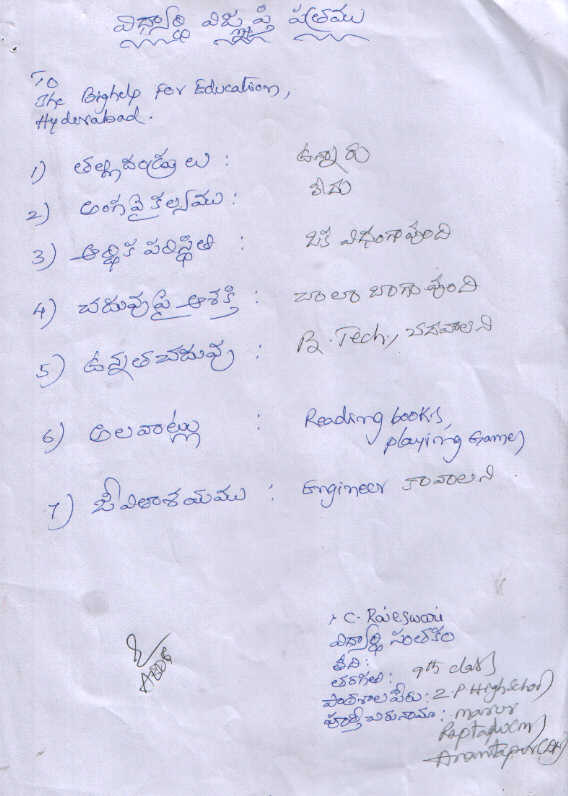 విద్యార్థి విజ్ఞప్తి పత్రము
To
The Bighelp For Education,
Hyderabad.
1) తల్లిదండ్రులు : ఉన్నారు
2) అంగవైకల్యము : లేదు
3) ఆర్థిక పరిస్థితి : ఒక విధంగావుంది
4) చదువుపై ఆశక్తి : చాలా బాగావుంది
5) ఉన్నతచదువు : B.Tech., చదవాలని
6) అలవాట్లు : Reading books,
playing Games
7) జీవితాశయము : Engineer కావాలని
C. Rajeswari
విద్యార్థి సంతకం
తేది :
తరగతి : 9th class
పాఠశాల పేరు : Z.P High School
పూర్తి చిరునామా : Marur
Raptadu(M)
Anantapur(Dt)